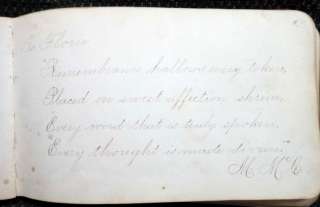 To Flora
"Remembrance hallows every token,
Placed on sweet affection shrine,
Every word that is truly spoken,
Every thought is made divine."
M. Mc